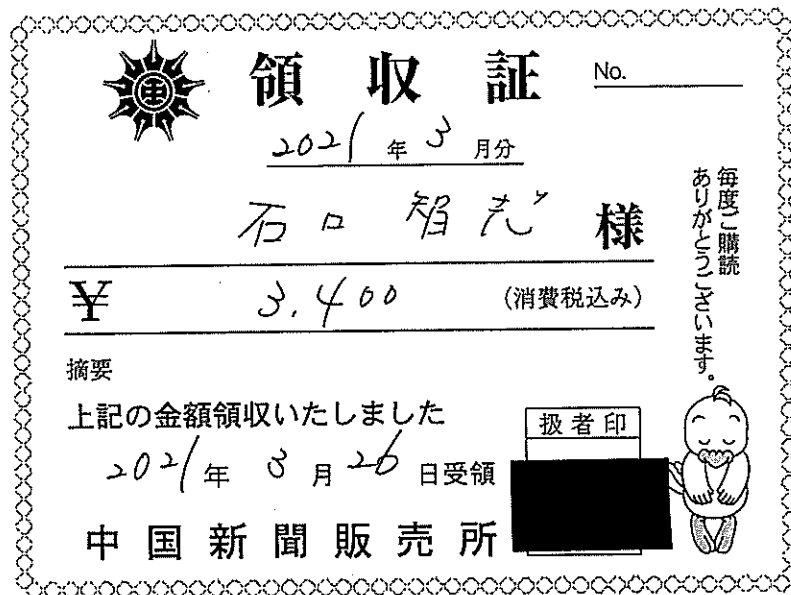 領収証
No.
2021年3月分
石口 智志 様
¥ 3.400 (消費税込み)
毎度ご購読
ありがとうございます。
摘要
上記の金額領収いたしました
2021年3月26日受領
扱者印
中国新聞販売所